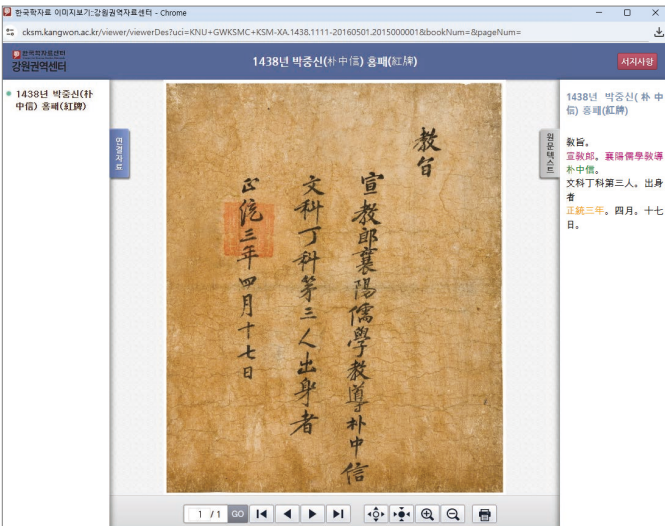 한국학자료 이미지보기::강원권역자료센터 - Chrome
cksm.kangwon.ac.kr/viewer/viewerDes?uci=KNU+GWKSMC+KSM-XA.1438.1111-20160501.2015000001&bookNum=&pageNum=
한국학자료센터
강원권역센터
1438년 박중신(朴中信) 홍패(紅牌)
서지사항
1438년 박중신(朴
中信) 홍패(紅牌)
연결자료
敎旨
宣敎郎襄陽儒學敎導朴中信
文科丁科第三人出身者
正統三年四月十七日
원문텍스트
1438년 박중신( 朴 中
信) 홍패(紅牌)
敎旨。
宣敎郎。襄陽儒學敎導
朴中信。
文科丁科第三人。出身
者
正統三年。四月。十七
日。
1 / 1 GO